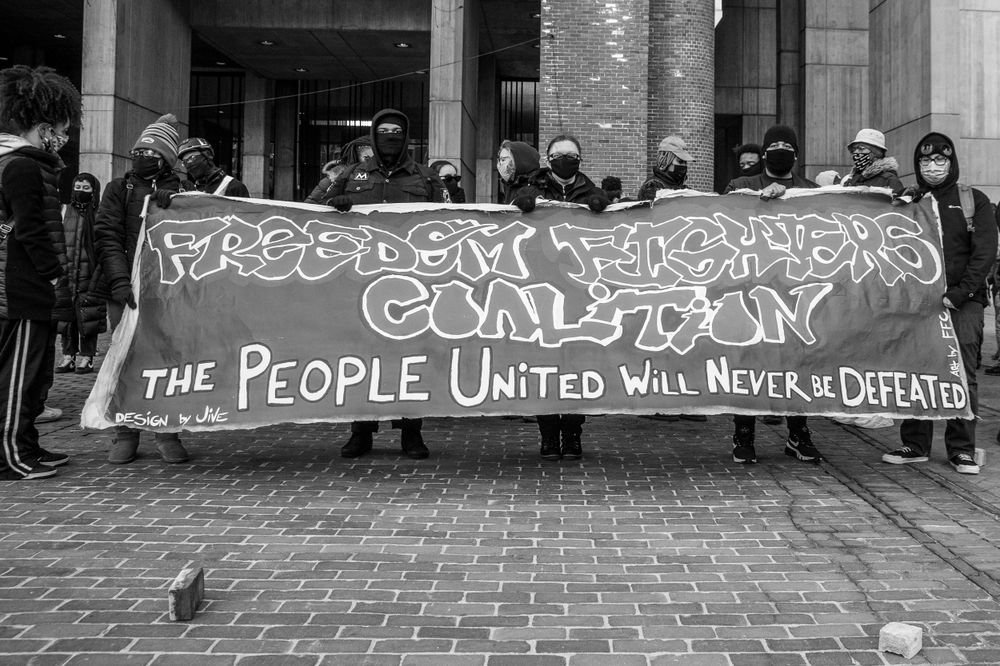 FREEDOM FIGHTERS
COALITION
THE PEOPLE UNITED WILL NEVER BE DEFEATED
DESIGN by JIVE
ART by FFC